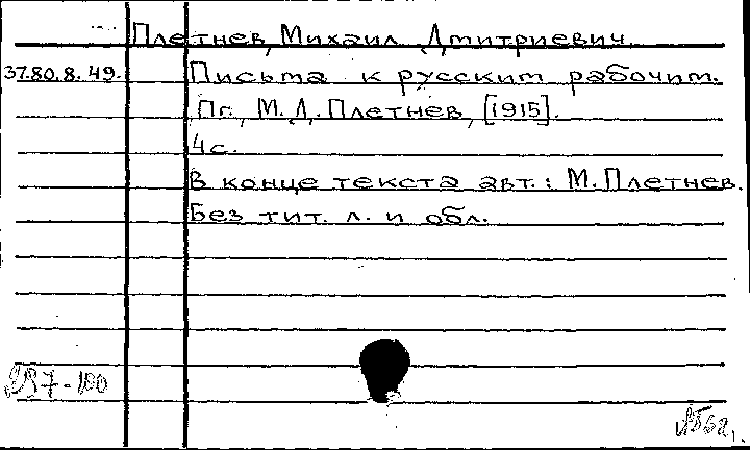 Плетнев, Михаил Дмитриевич
37.80.8.49. Письма к русским рабочим.
Пг., М.Д. Плетнев, [1915].
4с.
В конце текста авт.: М.Плетнев.
Без тит. л. и обл.